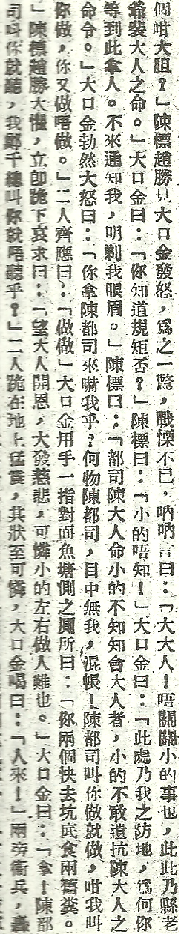 個咁大胆？」陳標趙勝見大口金發怒，爲之一驚，戰慄不已，吶吶言曰：「大大人！唔關關小的事也，此乃縣老
爺裝大人之命。」大口金曰：「你知道規矩否？」陳標曰：「小的唔知！」大口金曰：「此處乃我之防地，爲何你
等到此拿人。不來通知我，明剃我眼眉。」陳標曰：「都司陳大人命小的不知知會大人者，小的不敢違抗陳大人之
命令。」大口金勃然大怒曰：「你拿陳都司來嚇我乎？何物陳都司，目中無我，張帳！陳都司叫你做就做，咁我叫
你做，你又做唔做。」二人齊應曰：「做做」大口金用手一指對面魚塘側之厠所曰：「你兩個快去坑底食兩簹糞。
」陳標趙勝大懼，立卽跪下哀求曰：「望大人開恩，大發慈悲，可憐小的左右做人難也。」大口金曰：「拿！陳都
司叫你就聽，我鄭千總叫你就唔聽乎？」二人跪在地上猛震，其狀至可憐，大口金喝曰：「人來！」兩旁衛兵，轟